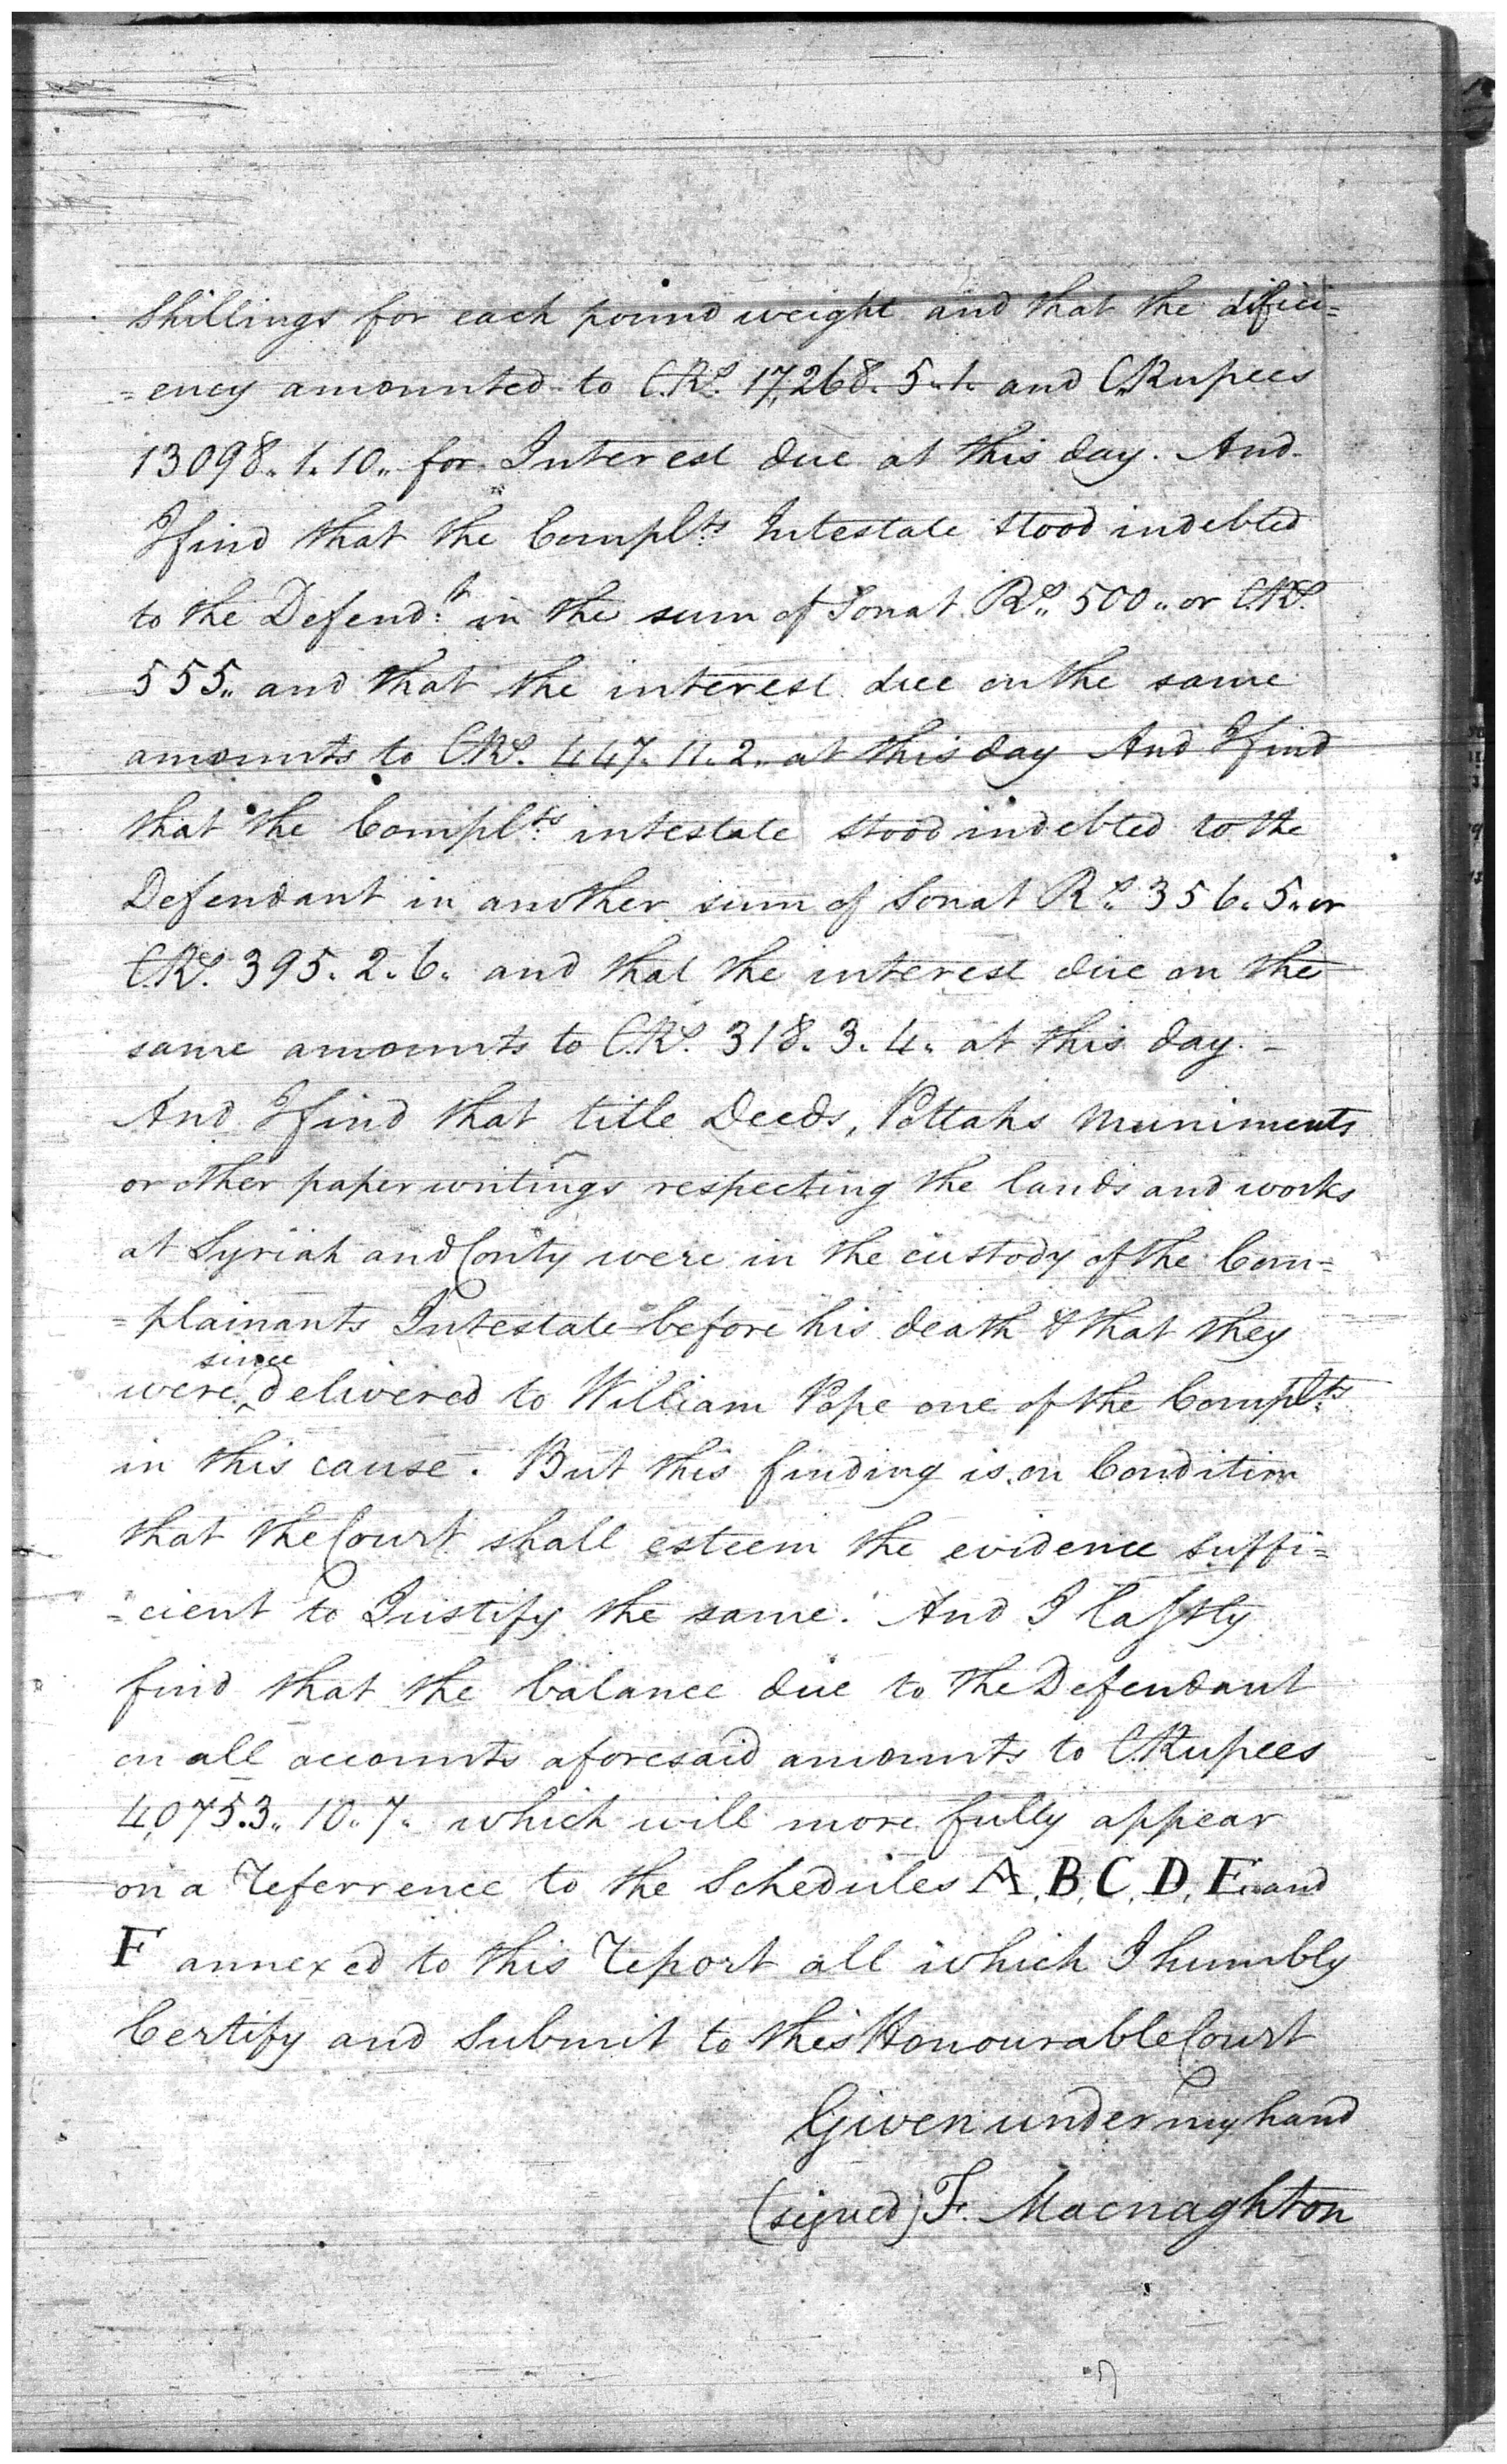 Shillings for each pound weight and that the difici=
=ency amounted to C.Rs. 17,268. 5. 1. and C.Rupees
13098. 1. 10.. for Interest due at this day. And
I find that the Complts Intestate stood indebted
to the Defendt in the sum of Sonat Rs.. 500.. or C.Rs.
555.. and that the interest due on the same
amounts to C.Rs. 447. 11. 2. at this day And I find
that the Complts intestate stood indebted to the
Defendant in another sum of Sonat Rs. 356. 5. or
C.Rs. 395. 2. 6. and that the interest due on the
same amounts to C.Rs. 318. 3. 4. at this day. -
And I find that title Deeds, Pottahs Muniments
or other paper writings respecting the lands and works
at Syriah and Conty were in the custody of the Com=
=plainants Intestate before his death & that they
were since delivered to William Pope one of the Complts
in this cause. But this finding is on Condition
that the Court shall esteem the evidence suffi=
=cient to Justify the same. And I lastly
find that the balance due to the Defendant
on all accounts aforesaid amounts to C.Rupees
40753. 10. 7. which will more fully appear
on a referrence to the Schedules A, B, C, D, E and
F annexed to this report all which I humbly
Certify and Submit to this Honourable Court
Given under my hand
(signed) F. Macnaghton